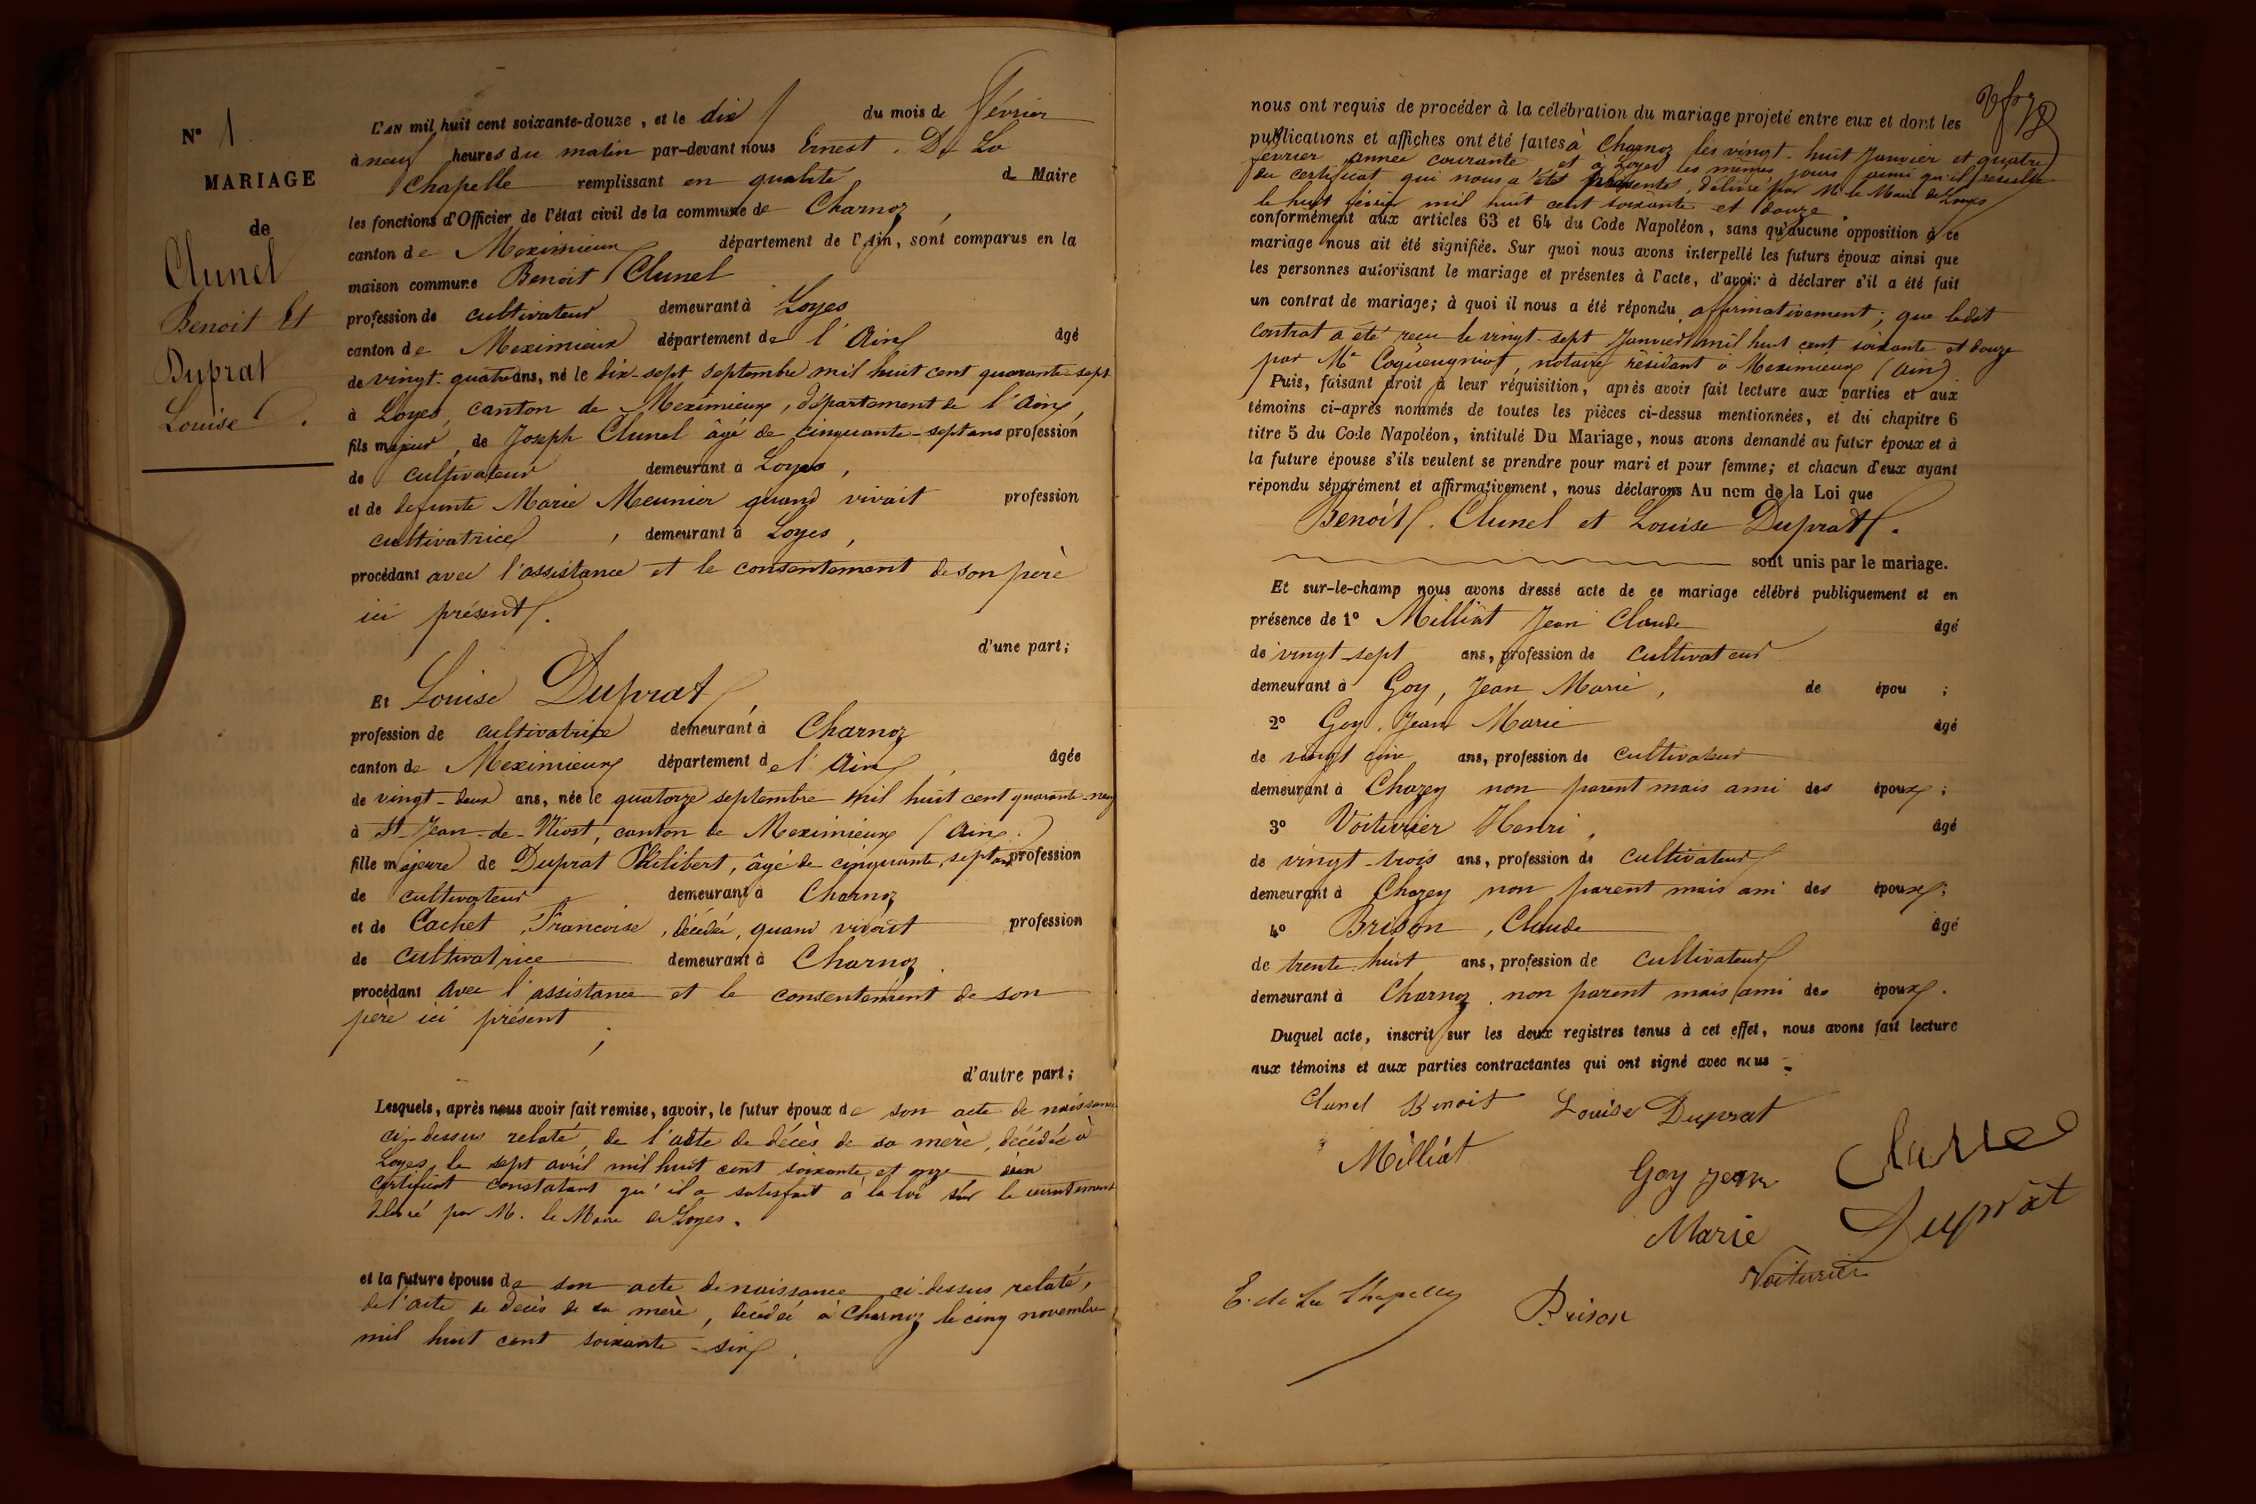 N° 1
MARIAGE
de
Clunel
Benoit Et
Duprat
Louise
L'AN mil huit cent soixante-douze, et le dix du mois de Février
à neuf heures du matin par-devant nous Ernest De La
Chapelle remplissant en qualité de Maire
les fonctions d'Officier de l'état civil de la commune de Charnoz,
canton de Meximieux département de l'Ain, sont comparus en la
maison commune Benoit Clunel
profession de cultivateur demeurant à Loyes
canton de Meximieux département de l'Ain âgé
de vingt-quatre ans, né le dix-sept septembre mil huit cent quarante-sept
à Loyes, canton de Meximieux, département de l'Ain,
fils majeur, de Joseph Clunel âgé de cinquante-sept ans profession
de cultivateur demeurant à Loyes,
et de defunte Marie Meunier quand vivait profession
cultivatrice, demeurant à Loyes,
procédant avec l'assistance et le consentement de son père
ici présent.
d'une part;
Et Louise Duprat,
profession de cultivatrice demeurant à Charnoz
canton de Meximieux département de l'Ain, âgée
de vingt-deux ans, née le quatorze septembre mil huit cent quarante-neuf
à St-Jean-de-Niost, canton de Meximieux (Ain)
fille majeure de Duprat Philibert, âgé de cinquante-sept ans profession
de cultivateur demeurant à Charnoz
et de Cachet, Francoise, décédée, quand vivait profession
de cultivatrice demeurant à Charnoz.
procédant avec l'assistance et le consentement de son
père ici présent;
d'autre part;
Lesquels, après nous avoir fait remise, savoir, le futur époux de son acte de naissance
ci-dessus relaté, de l'acte de décès de sa mère, décédée à
Loyes, le sept avril mil huit cent soixante et onze
certificat constatant qu'il a satisfait à la loi sur le recrutement
délivré par M. le Maire de Loyes.
et la future épouse de son acte de naissance ci-dessus relaté,
de l'acte de décès de sa mère, décédée à Charnoz le cinq novembre
mil huit cent soixante-six.
nous ont requis de procéder à la célébration du mariage projeté entre eux et dont les
publications et affiches ont été faites à Charnoz les vingt-huit Janvier et quatre
fevrier année courante, et à Loyes les mêmes jours ainsi qu'il résulte
du certificat qui nous a été présenté, délivré par M. le Maire de Loyes
le huit février mil huit cent soixante et douze.
conformément aux articles 63 et 64 du Code Napoléon, sans qu'aucune opposition à ce
mariage nous ait été signifiée. Sur quoi nous avons interpellé les futurs époux ainsi que
les personnes autorisant le mariage et présentes à l'acte, d'avoir à déclarer s'il a été fait
un contrat de mariage; à quoi il nous a été répondu affirmativement; que ledit
contrat a été reçu le vingt-sept Janvier mil huit cent soixante et douze
par Me Coqueugniot, notaire résidant à Meximieux (Ain)
Puis, faisant droit à leur réquisition, après avoir fait lecture aux parties et aux
témoins ci-après nommés de toutes les pièces ci-dessus mentionnées, et du chapitre 6
titre 5 du Code Napoléon, intitulé Du Mariage, nous avons demandé au futur époux et à
la future épouse s'ils veulent se prendre pour mari et pour femme; et chacun d'eux ayant
répondu séparément et affirmativement, nous déclarons Au nom de la Loi que
Benoit Clunel et Louise Duprat.
sont unis par le mariage.
Et sur-le-champ nous avons dressé acte de ce mariage célébré publiquement et en
présence de 1° Milliat Jean Claude âgé
de vingt-sept ans, profession de cultivateur
demeurant à Goy, Jean Marie, de épou ;
2° Goy, Jean Marie âgé
de vingt cinq ans, profession de cultivateur
demeurant à Chazey non parent mais ami des époux;
3° Voiturier Henri, âgé
de vingt-trois ans, profession de cultivateur
demeurant à Chazey non parent mais ami des époux;
4° Brison, Claude âgé
de trente-huit ans, profession de cultivateur
demeurant à Charnoz, non parent mais ami des époux.
Duquel acte, inscrit sur les deux registres tenus à cet effet, nous avons fait lecture
aux témoins et aux parties contractantes qui ont signé avec nous.
Clunel Benoit Louise Duprat
Milliat Goy jean Clunel
Marie Duprat
Voiturier
E. de La Chapelle Brison